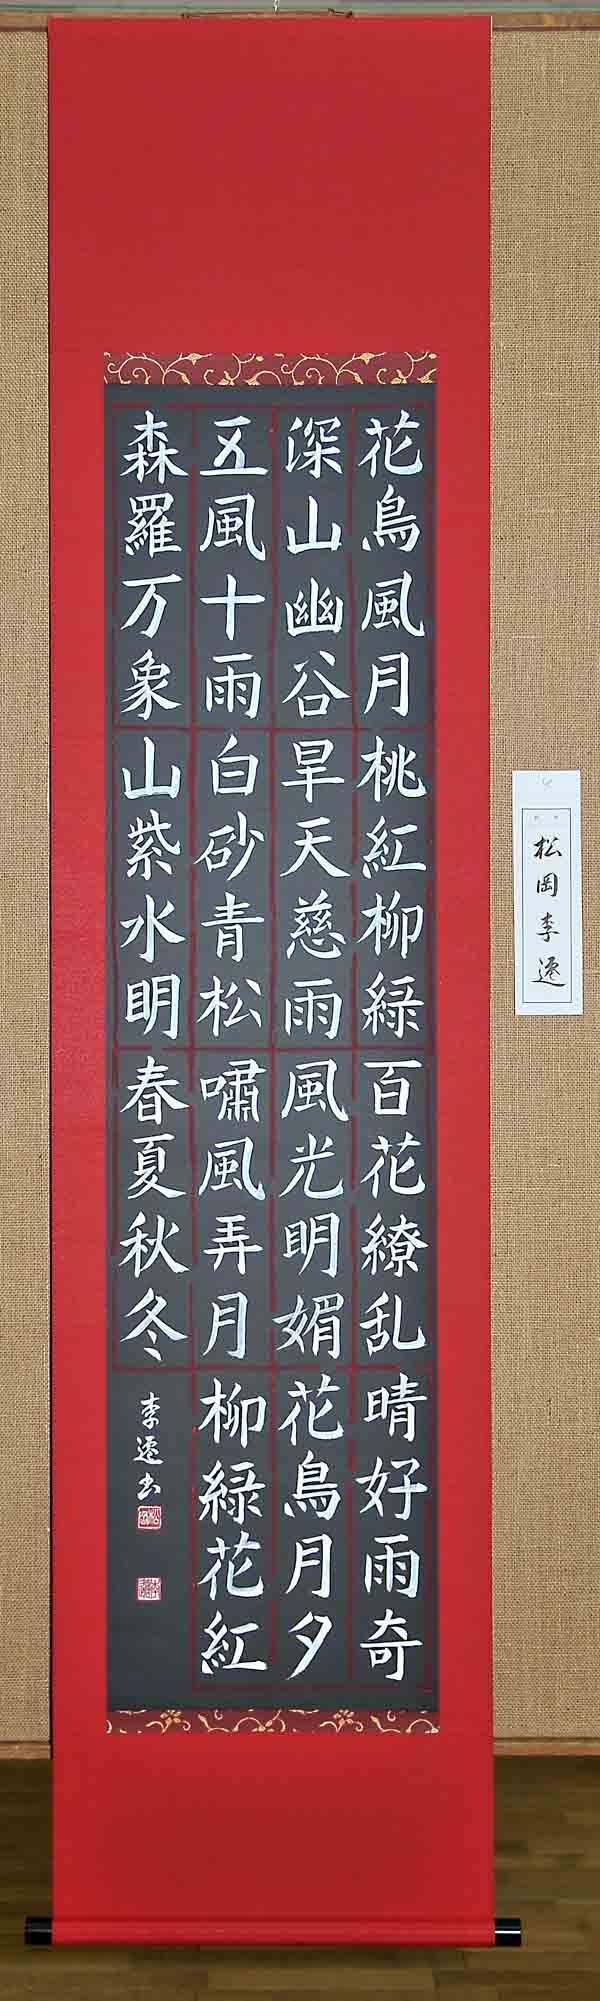 花鳥風月桃紅柳緑百花繚乱晴好雨奇
深山幽谷旱天慈雨風光明媚花鳥月夕
五風十雨白砂青松嘯風弄月柳緑花紅
森羅万象山紫水明春夏秋冬
李遥书
松岡李遥